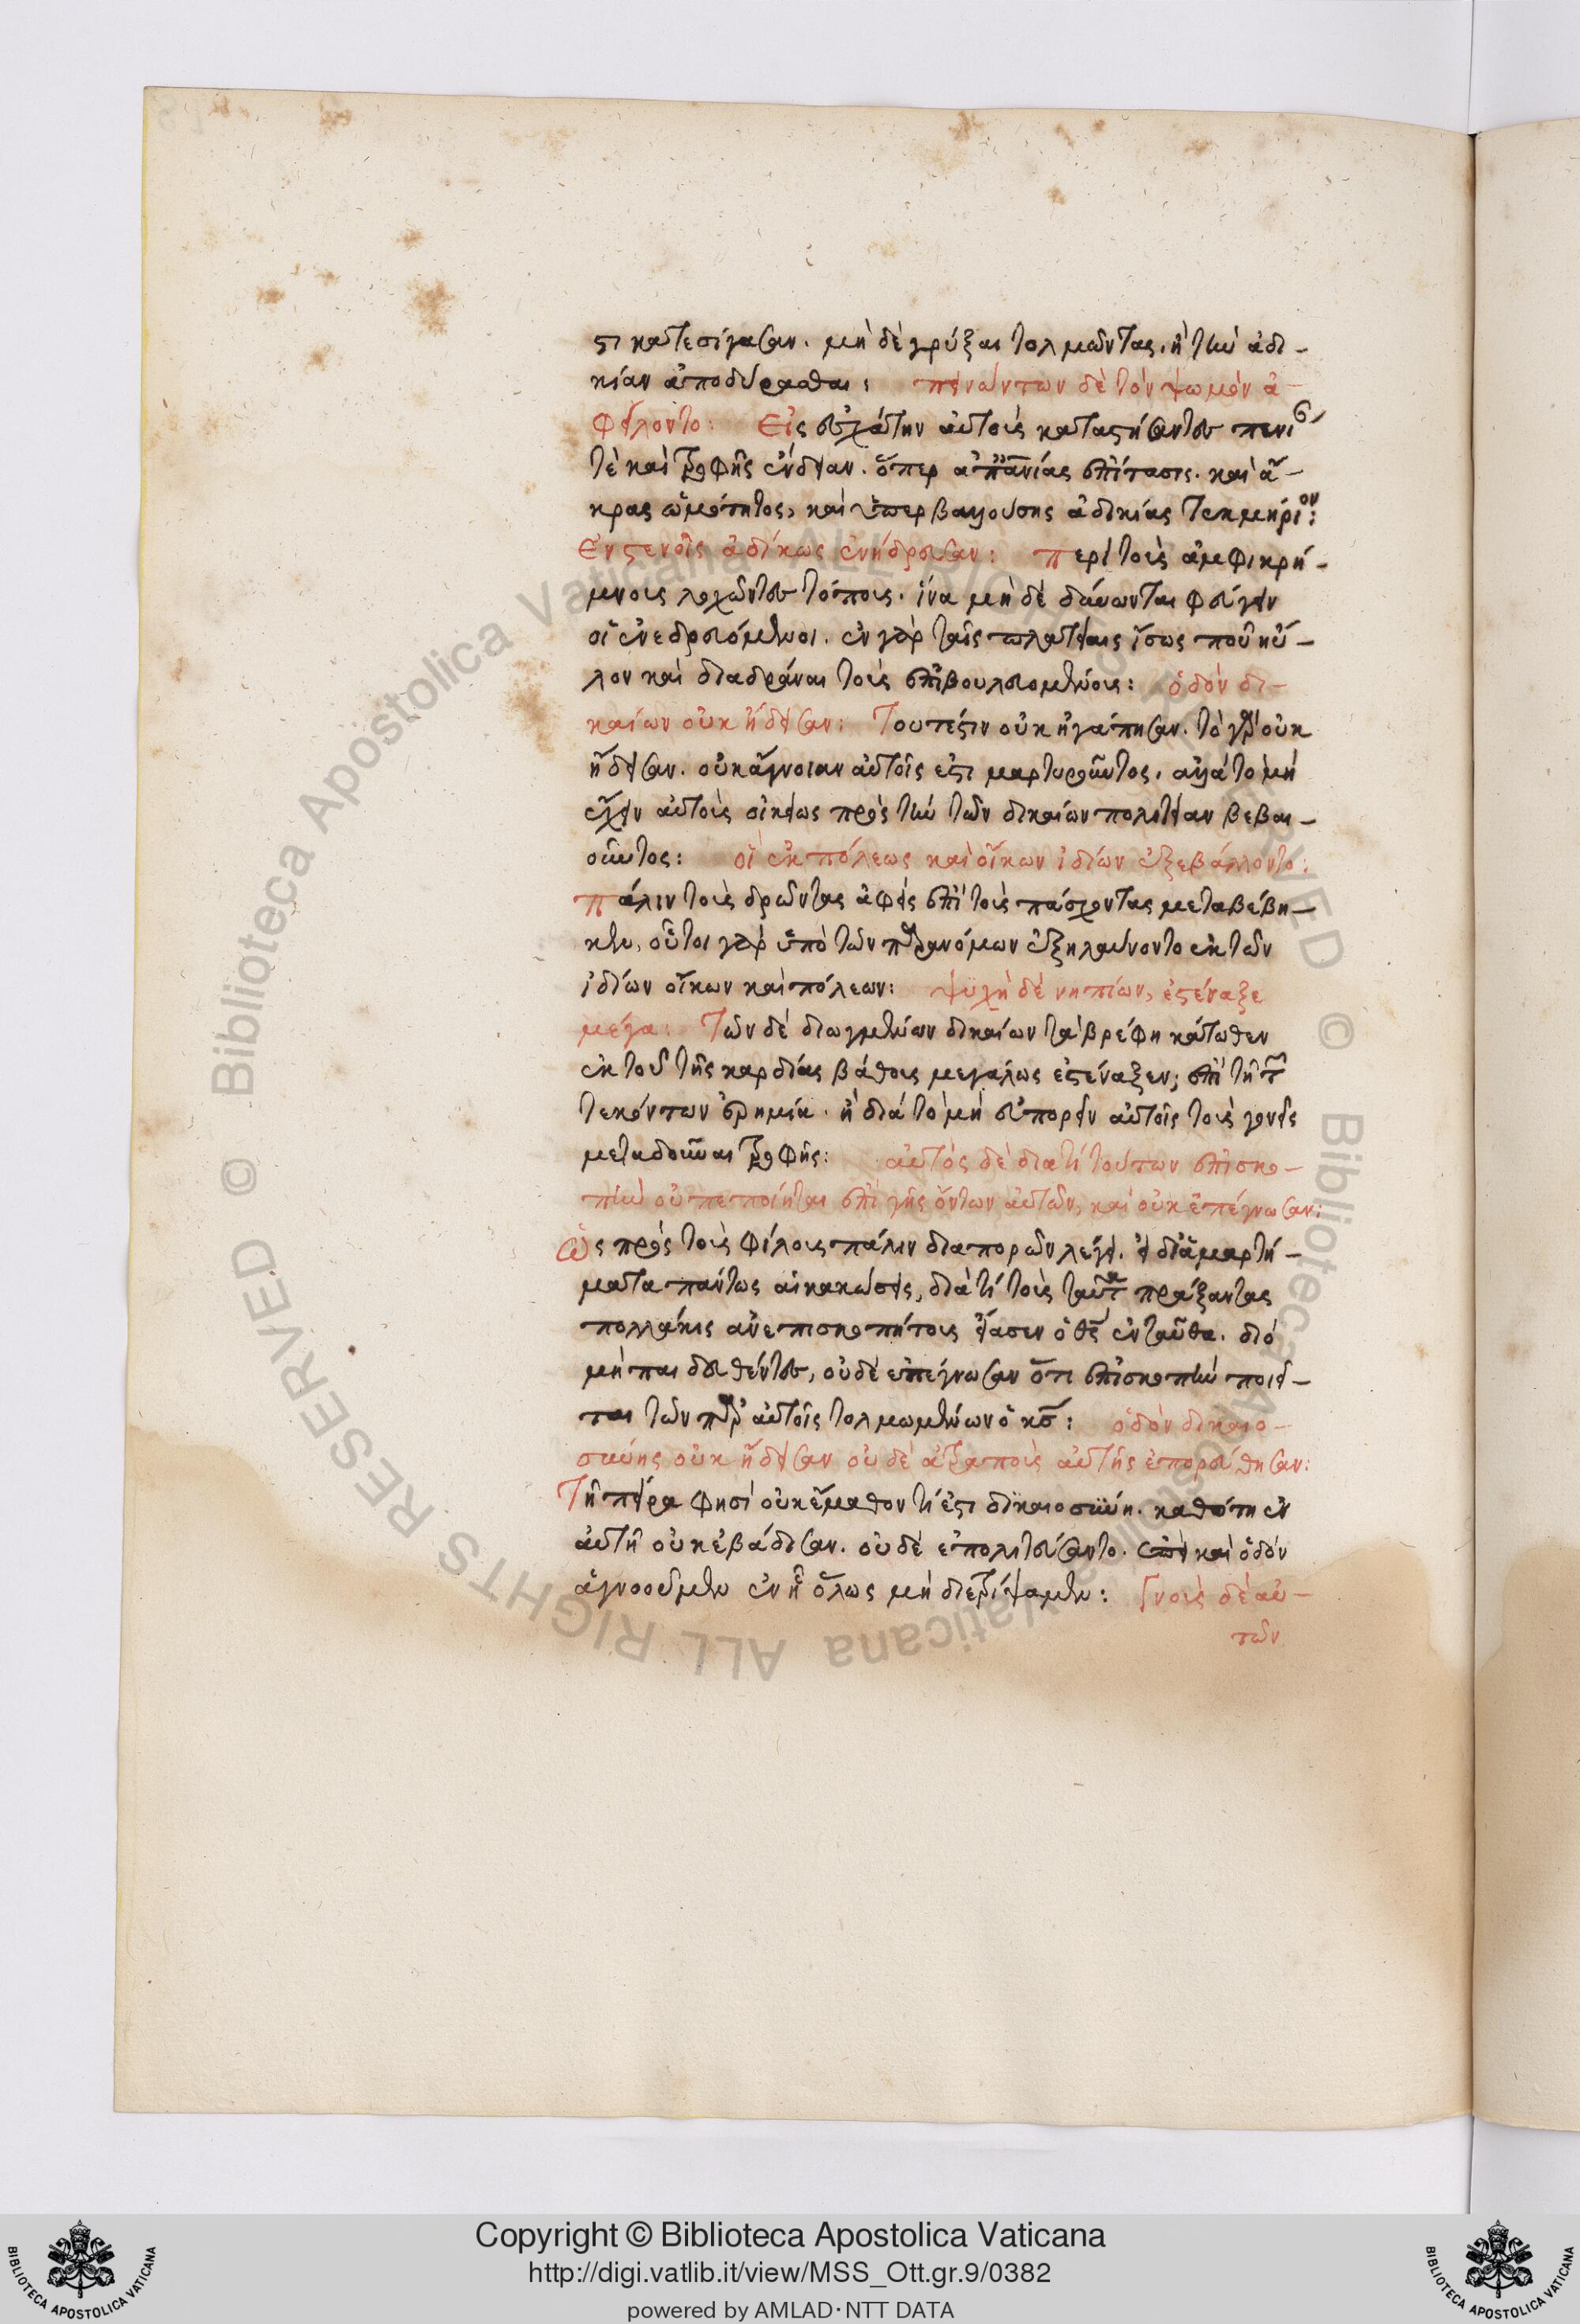 στι κατεσίγασαν. μὴ δὲ γρύξαι τολμῶντας. ἢ τὴν ἀδι-
κίαν ἀποδύρασθαι: πεινώντων δὲ τὸν ψωμὸν ἀ-
φείλοντο: Εἰς ἐσχάτην αὐτοὺς καταστήσαντες πενί
τὲ καὶ τροφῆς ἔνδειαν. ὅπερ ἀπανθρωπίας ἐπίτασις. καὶ ἄ-
κρας ὠμότητος, καὶ ὑπερβαλλούσης ἀδικίας τεκμήριον:
Ἐν στενοῖς ἀδίκως ἐνήδρευσαν: περὶ τοὺς ἀμφικρή-
μνους λοχῶντες τόπους. ἵνα μὴ δὲ δύνωνται φεύγειν
οἱ ἐνεδρευόμενοι. ἐν γὰρ ταῖς πλατείαις ἴσως ποῦ κἦ-
λον καὶ διαδρᾶναι τοὺς ἐπιβουλευομένους: ὁδὸν δι-
καίων οὐκ ᾔδεισαν: Τουτέστιν οὐκ ἠγάπησαν. τὸ γὰρ οὐκ
ᾔδεισαν. οὐκ ἄγνοιαν αὐτοῖς ἐστι μαρτυροῦντος. ἀλλὰ τὸ μὴ
ἔχειν αὐτοὺς οἰκείως πρὸς τὴν τῶν δικαίων πολιτείαν βεβαι-
οῦντος: οἳ ἐκ πόλεως καὶ οἴκων ἰδίων ἐξεβάλλοντο:
πάλιν τοὺς δρῶντας ἀφεὶς ἐπὶ τοὺς πάσχοντας μεταβέβη-
κεν, οὗτοι γὰρ ὑπὸ τῶν παρανόμων ἐξηλαύνοντο ἐκ τῶν
ἰδίων οἴκων καὶ πόλεων: ψυχὴ δὲ νηπίων, ἐστέναξε
μέγα: Τῶν δὲ διωγμένων δικαίων τὰ βρέφη κάτωθεν
ἐκ τοῦ τῆς καρδίας βάθους μεγάλως ἐστέναξεν; ἐπὶ τῇ τῶν
τεκόντων ἐρημία. ἢ διὰ τὸ μὴ εὐπορεῖν αὐτοῖς τοὺς γονεῖς
μεταδοῦναι τροφῆς: αὐτὸς δὲ διατί τούτων ἐπισκο-
πὴν οὐ πεποίηται ἐπὶ γῆς ὄντων αὐτῶν, καὶ οὐκ ἐπέγνωσαν:
Ὡς πρὸς τοὺς φίλους πάλιν διαπορῶν λέγει. εἰ δι' ἁμαρτή-
ματα πάντως αἱ κακώσεις, διὰ τί τοὺς ταῦτα πράξαντας
πολλάκις ἀνεπισκοπήτους εἴασεν ὁ θς ἐνταῦθα. διὸ
μὴ παιδευθέντες, οὐδὲ ἐπέγνωσαν ὅτι ἐπισκοπὴν ποιεῖ-
ται τῶν παρ' αὐτοῖς τολμωμένων ὁ κς: ὁδὸν δικαιο-
σύνης οὐκ ᾔδεισαν οὐδὲ ἀτραποὺς αὐτῆς ἐπορεύθησαν:
Τῇ πείρα φησὶ οὐκ ἔμαθον τί ἐστι δικαιοσύνη. καθότη ἐν
αὐτῇ οὐκ ἐβάδισαν. οὐδὲ ἐπολιτεύσαντο. καὶ ὁδὸν
ἀγνοοῦμεν ἐν ᾗ ὅλως μὴ διετρίψαμεν: Γνοὺς δὲ αὐ-
τῶν
Copyright © Biblioteca Apostolica Vaticana
http://digi.vatlib.it/view/MSS_Ott.gr.9/0382
powered by AMLAD·NTT DATA
© Biblioteca Apostolica Vaticana ALL RIGHTS RESERVED © Biblioteca Apostolica Vaticana ALL RIGHTS RESERVED
BIBLIOTECA APOSTOLICA VATICANA
BIBLIOTECA APOSTOLICA VATICANA